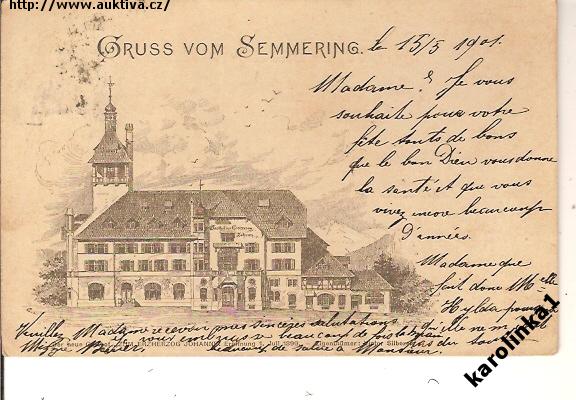 http://www.auktiva.cz/
GRUSS VOM SEMMERING.
le 15/5 1901.
Madame! Je vous
souhaite pour votre
fête touts de bons
que le bon Dieu vous donne
la santé et que vous
vivez encore beaucoup
d'années.
Madame que
fait donc Mlle
Hylda pourquoi
elle ne m
pas du tout
Veuillez Madame recevoir mes sincères salutations
vous beaucoup de fois
de salue à Monsieur.
Der neue ERZHERZOG JOHANN Eröffnung 1. Juli 1899. Eigenthümer: Silber
karolinka1